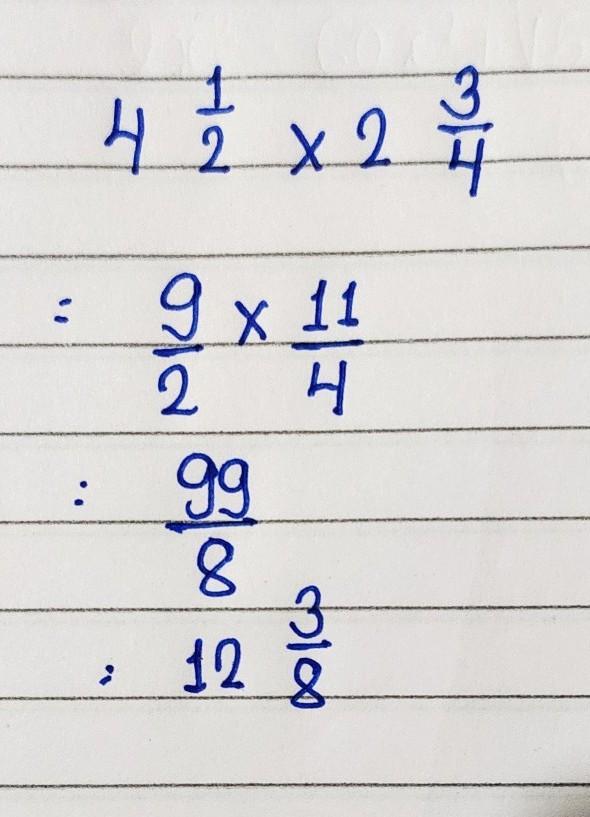 4 1/2 x 2 3/4
= 9/2 x 11/4
: 99/8
: 12 3/8